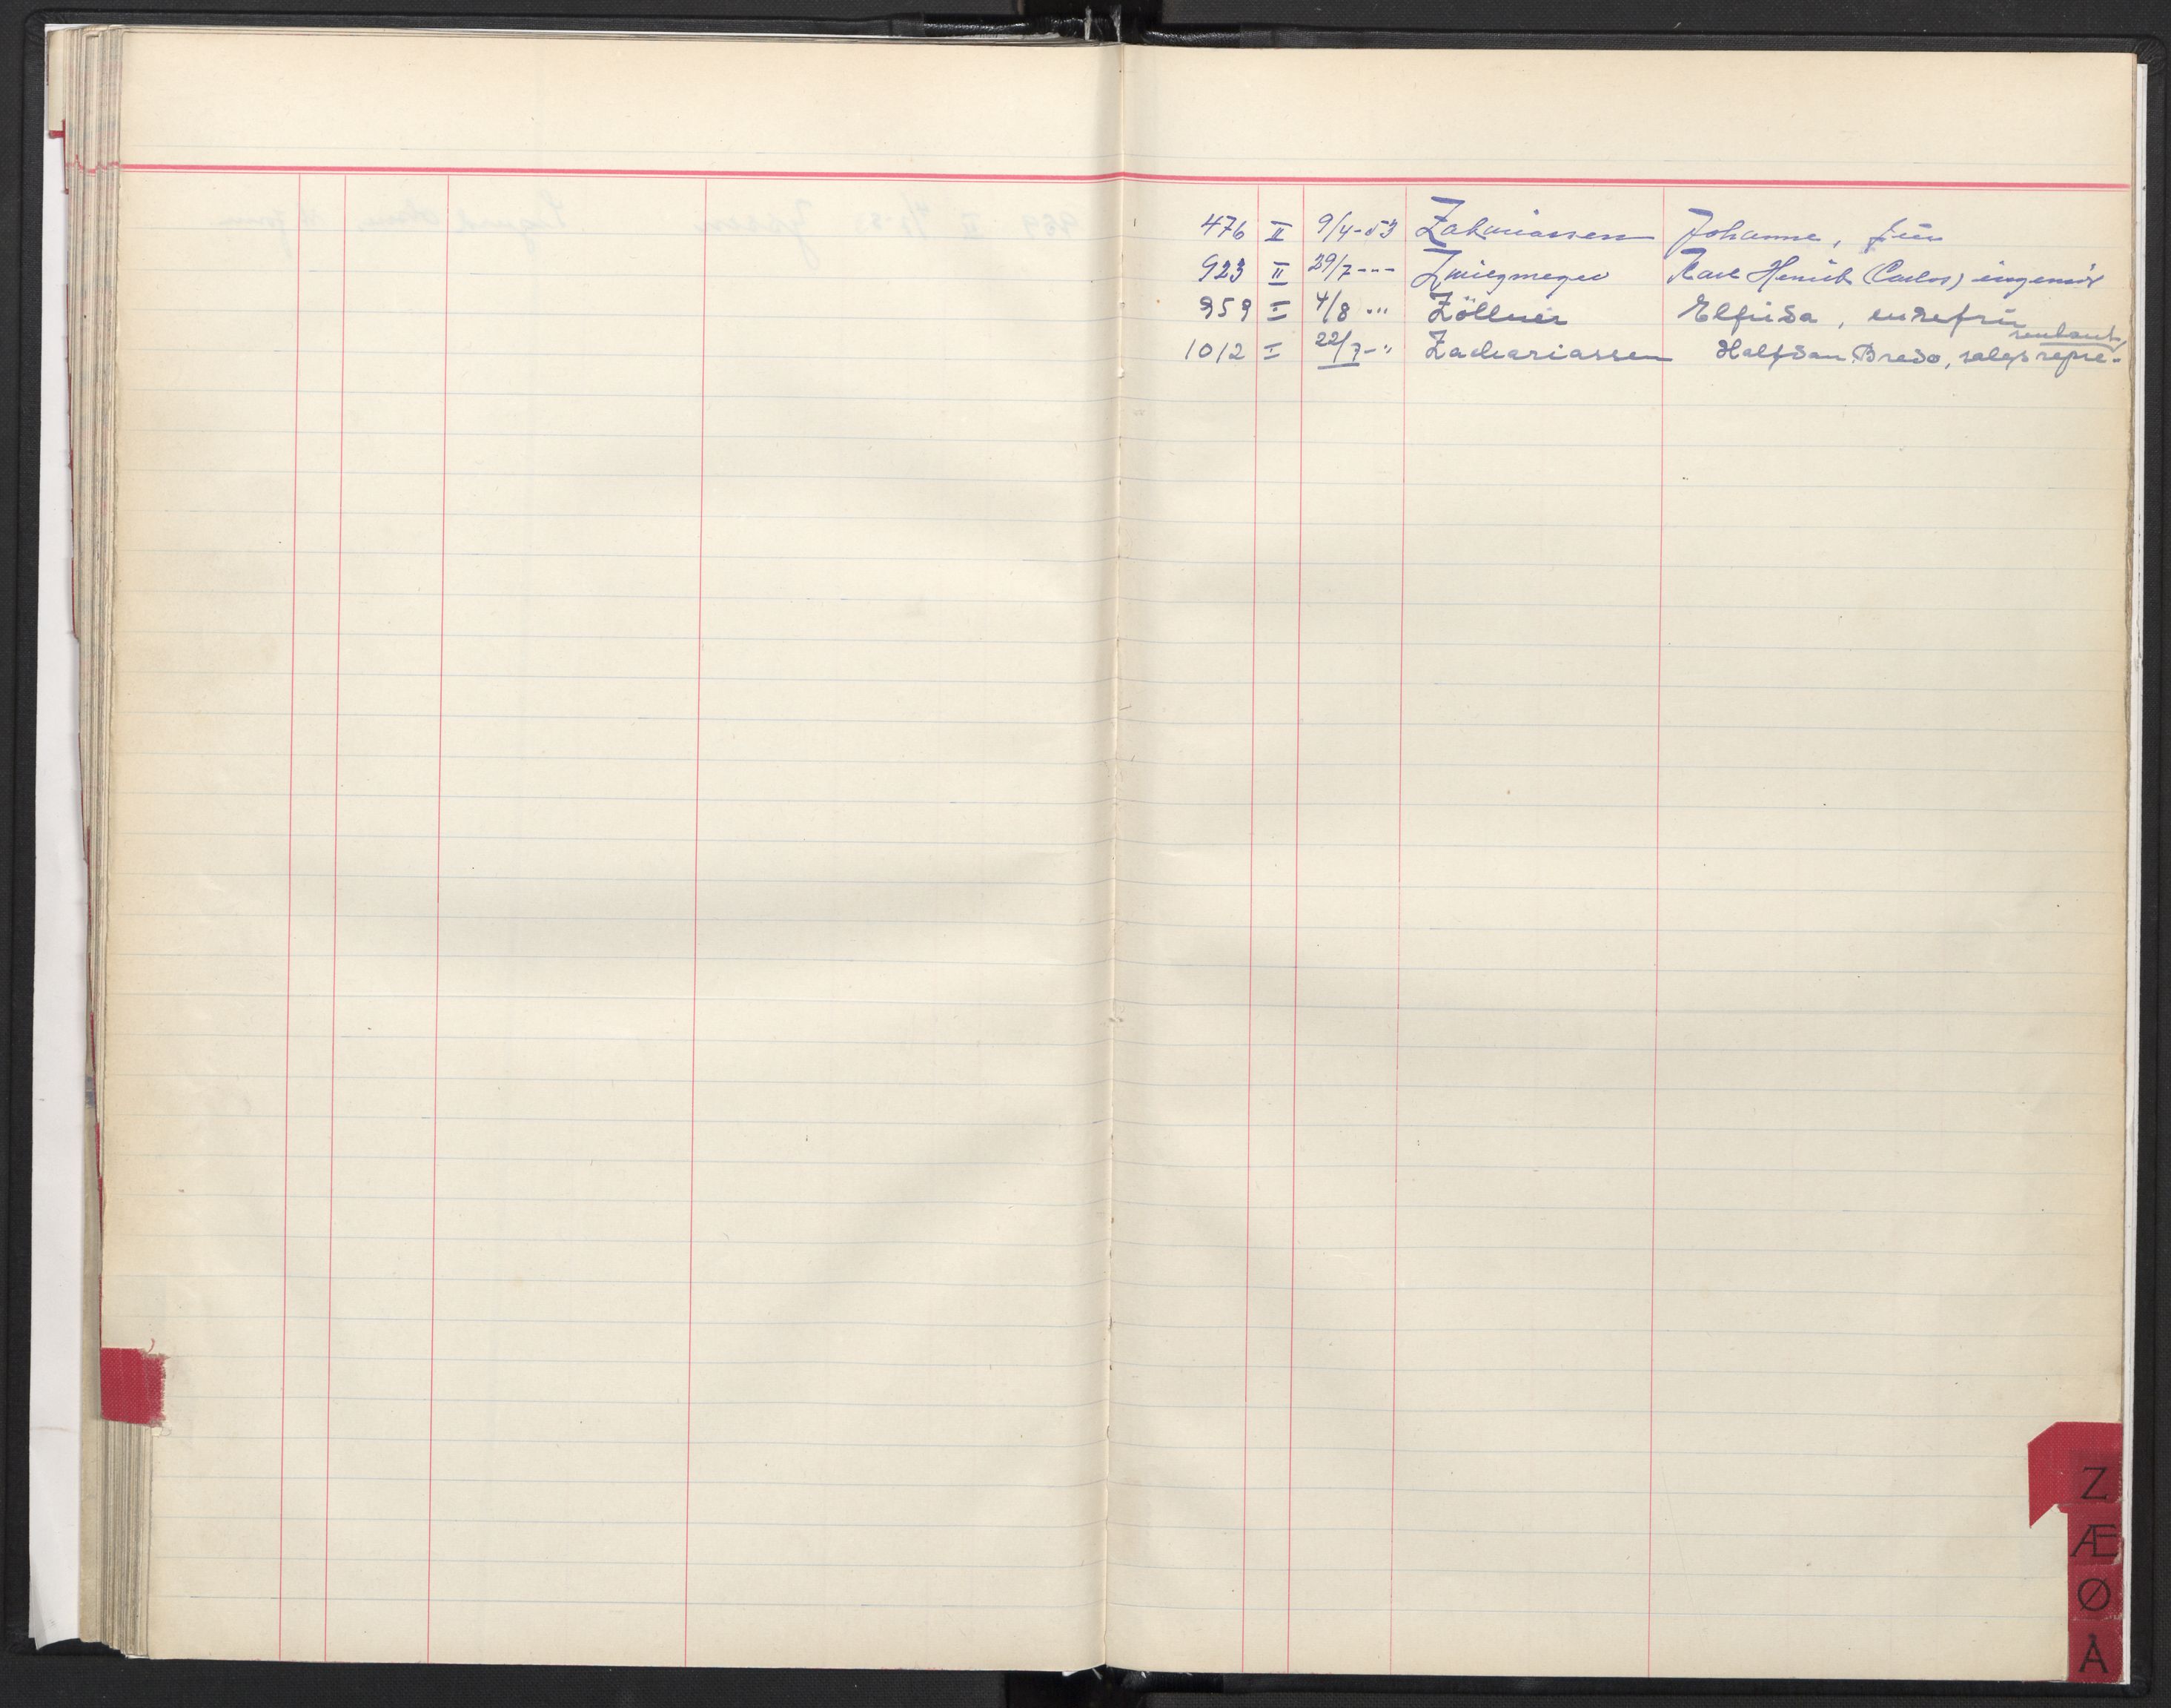 476 II 9/4-53 Zakariassen Johanne, frue
923 II 29/7--- Zwiegmeyer Karl Henrik (Carlos) ingeniør
959 I 4/8 ... Zöllner Elfrida, enkefru
sentant,
1012 I 22/7-" Zachariassen Halfdan Bredo, salgsrepre-
Z
Æ
Ø
Å